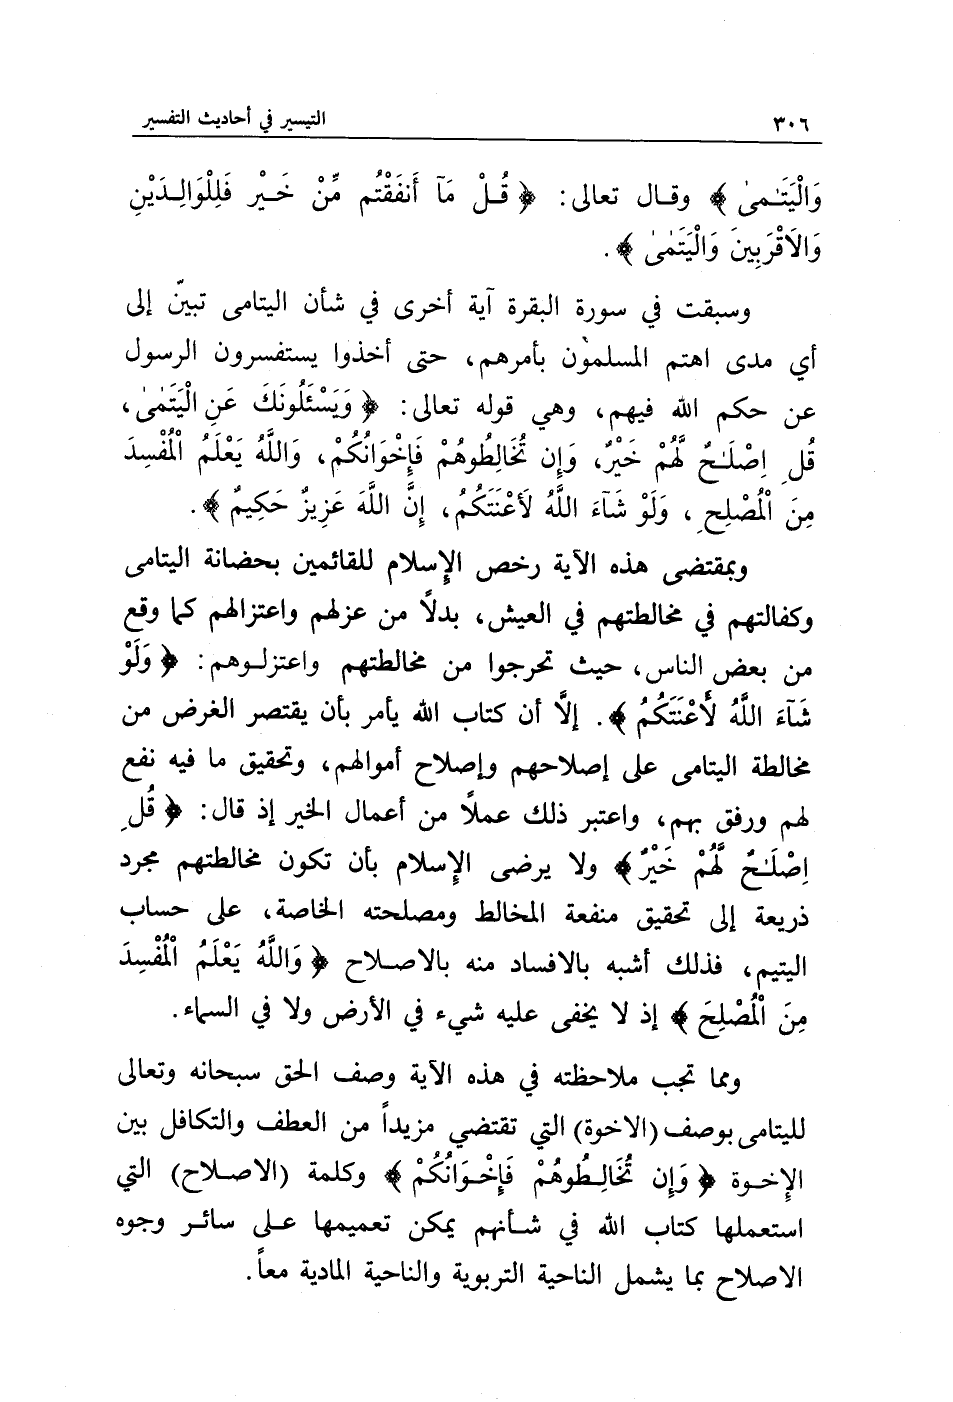 ٣٠٦ التيسير في أحاديث التفسير
وَالْيَتَـٰمىٰ ﴾ وقـال تعالى: ﴿ قُـلْ مَآ أَنفَقْتُم مِّنْ خَـيْر فَلِلْوَالِـدَيْنِ
وَالَاقْرَبِينَ وَالْيَتَمٰىٰ ﴾.
وسبقت في سورة البقرة آية أخرى في شأن اليتامى تبينّ إلى
أي مدى اهتم المسلمون بأمرهم، حتى أخذوا يستفسرون الرسول
عن حكم الله فيهم، وهي قوله تعالى: ﴿ وَيَسْئَلُونَكَ عَنِ الْيَتَمٰىٰ،
قُل اِصْلَـٰحٌ لَّهُمْ خَيْرٌ، وَإِن تُخَالِطُوهُمْ فَإِخْوَانُكُمْ، وَاللَّهُ يَعْلَمُ الْمُفْسِدَ
مِنَ الْمُصْلِحِ، وَلَوْ شَآءَ اللَّهُ لَأعْنَتَكُمُ، إِنَّ اللَّهَ عَزِيزٌ حَكِيمٌ ﴾.
وبمقتضى هذه الآية رخص الإسلام للقائمين بحضانة اليتامى
وكفالتهم في مخالطتهم في العيش، بدلاً من عزلهم واعتزالهم كما وقع
من بعض الناس، حيث تحرجوا من مخالطتهم واعتزلـوهم: ﴿ وَلَوْ
شَآءَ اللَّهُ لَأَعْنَتَكُمُ ﴾. إلاَّ أن كتاب الله يأمر بأن يقتصر الغرض من
مخالطة اليتامى على إصلاحهم وإصلاح أموالهم، وتحقيق ما فيه نفع
لهم ورفق بهم، واعتبر ذلك عملاً من أعمال الخير إذ قال: ﴿ قُل
اِصْلَـٰحٌ لَّهُمْ خَيْرٌ ﴾ ولا يرضى الإسلام بأن تكون مخالطتهم مجرد
ذريعة إلى تحقيق منفعة المخالط ومصلحته الخاصة، على حساب
اليتيم، فذلك أشبه بالافساد منه بالاصـلاح ﴿ وَاللَّهُ يَعْلَمُ الْمُفْسِدَ
مِنَ الْمُصْلِحَ ﴾ إذ لا يخفى عليه شيء في الأرض ولا في السماء.
ومما تجب ملاحظته في هذه الآية وصف الحق سبحانه وتعالى
لليتامى بوصف (الاخوة) التي تقتضي مزيداً من العطف والتكافل بين
الإخـوة ﴿ وَإِن تُخَالِـطُوهُمْ فَإِخْـوَانُكُمْ ﴾ وكلمة (الاصـلاح) التي
استعملها كتاب الله في شـأنهم يمكن تعميمها عـلى سائـر وجوه
الاصلاح بما يشمل الناحية التربوية والناحية المادية معاً.